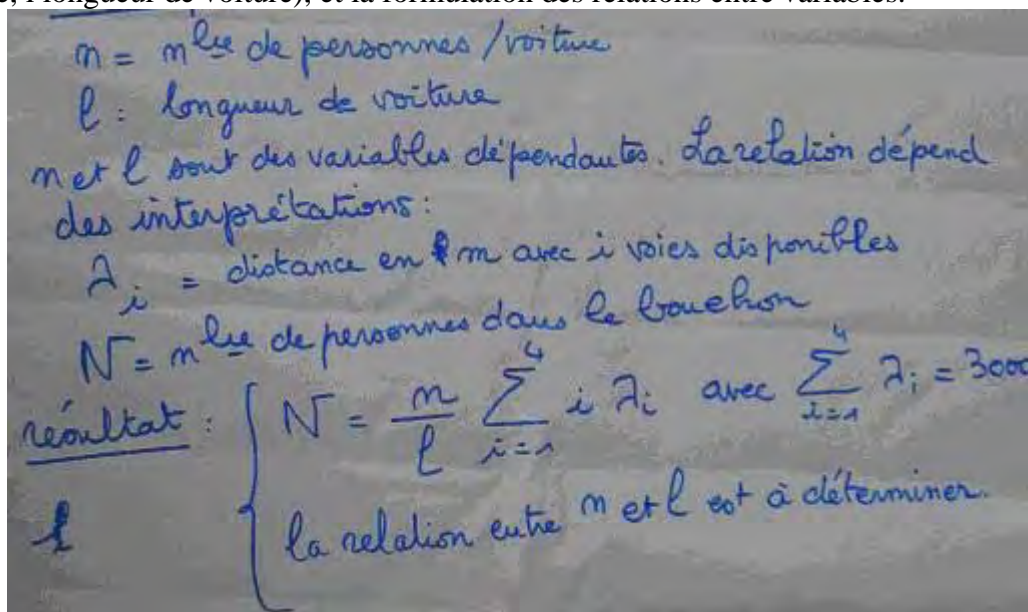 , l longueur de voiture), et la formulation des relations entre variables.
n = nbre de personnes / voiture
l : longueur de voiture
n et l sont des variables dépendantes. La relation dépend
des interprétations :
λi = distance en m avec i voies disponibles
N = nbre de personnes dans le bouchon
résultat : { N = n/l ∑_{i=1}^{4} i λi avec ∑_{i=1}^{4} λi = 3000
la relation entre n et l est à déterminer.